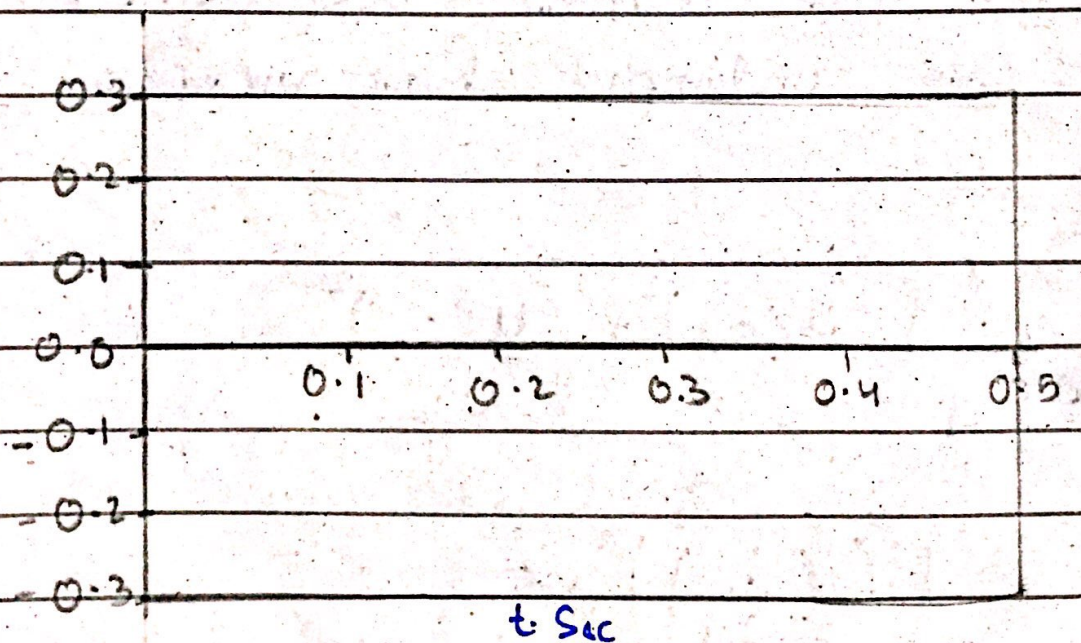 0.3
0.2
0.1
0.0
0.1 0.2 0.3 0.4 0.5
-0.1
-0.2
-0.3
t. Sec